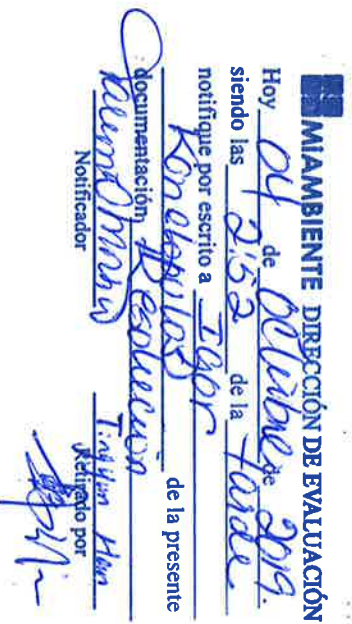 MIAMBIENTE DIRECCIÓN DE EVALUACIÓN
Hoy 04 de Octubre de 2019.
siendo las 2:52 de la tarde
notifique por escrito a Igor
Kanelopulos de la presente
documentación Resolución
Notificador Retirado por